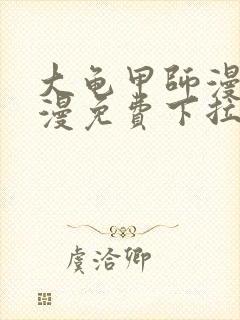 大龟甲师漫
漫免费下拉
虞洽卿